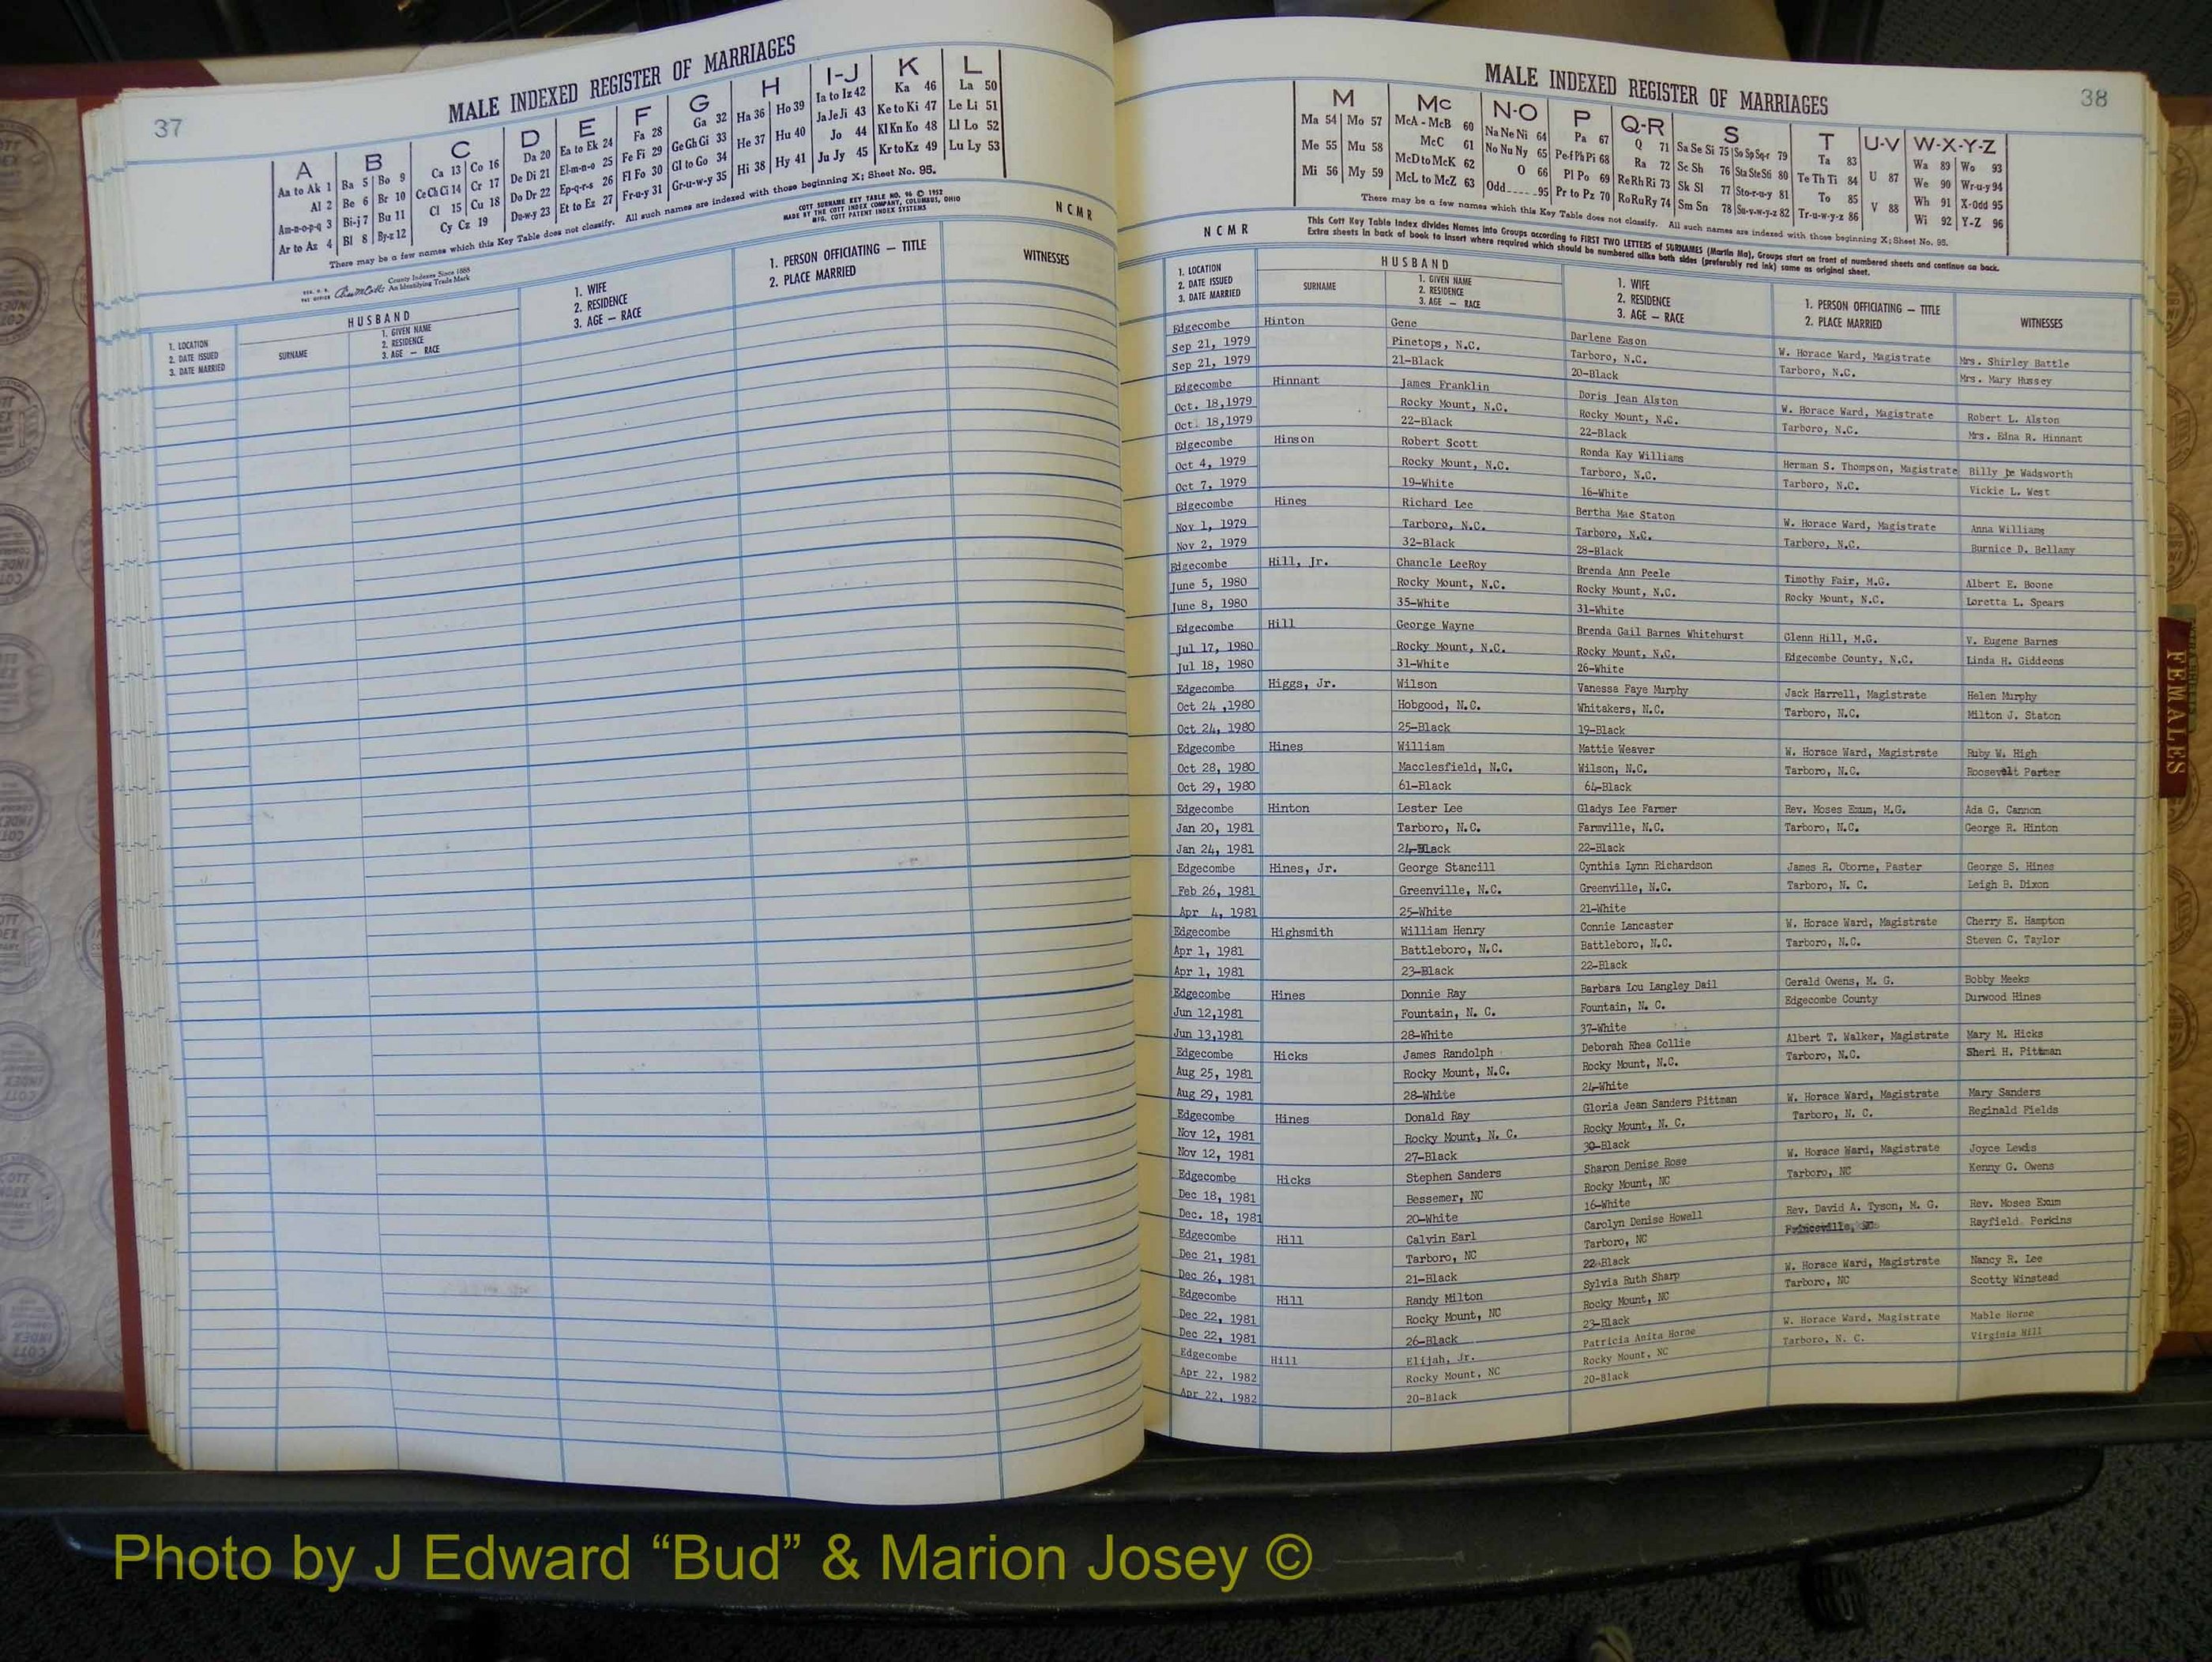 37
MALE INDEXED REGISTER OF MARRIAGES
A B C D E F G H I-J K L
Aa to Ak 1 Ba 5 Bo 9 Ca 13 Co 16 Da 20 Ea to Ek 24 Fa 28 Ga 32 Ha 36 Ho 39 Ia to Iz 42 Ka 46 La 50
Al 2 Be 6 Br 10 Ce Ch Ci 14 Cr 17 De Di 21 El-m-n-o 25 Fe Fi 29 Ge Gh Gi 33 He 37 Hu 40 Ja Je Ji 43 Ke to Ki 47 Le Li 51
Am-n-o-p-q 3 Bi-j 7 Bu 11 Cl 15 Cu 18 Do Dr 22 Ep-q-r-s 26 Fl Fo 30 Gl to Go 34 Hi 38 Hy 41 Jo 44 Kl Kn Ko 48 Ll Lo 52
Ar to Az 4 Bl 8 By-z 12 Cy Cz 19 Du-w-y 23 Et to Ez 27 Fr-u-y 31 Gr-u-w-y 35 Ju Jy 45 Kr to Kz 49 Lu Ly 53
There may be a few names which this Key Table does not classify. All such names are indexed with those beginning X; Sheet No. 95.
COTT SURNAME KEY TABLE NO. 96 © 1952
MADE BY THE COTT INDEX COMPANY, COLUMBUS, OHIO
MFG. COTT PATENT INDEX SYSTEMS
NCMR
County Indexes Since 1888
An Identifying Trade Mark
1. LOCATION
2. DATE ISSUED
3. DATE MARRIED
HUSBAND
SURNAME
1. GIVEN NAME
2. RESIDENCE
3. AGE — RACE
1. WIFE
2. RESIDENCE
3. AGE — RACE
1. PERSON OFFICIATING — TITLE
2. PLACE MARRIED
WITNESSES
38
MALE INDEXED REGISTER OF MARRIAGES
M Mc N-O P Q-R S T U-V W-X-Y-Z
Ma 54 Mo 57 McA - McB 60 Na Ne Ni 64 Pa 67 Q 71 Sa Se Si 75 So Sp Sq-r 79 Ta 83 U 87 Wa 89 Wo 93
Me 55 Mu 58 McC 61 No Nu Ny 65 Pe-f Ph Pi 68 Ra 72 Sc Sh 76 Sta Ste S6 80 Te Th Ti 84 V 88 We 90 Wr-u-y 94
Mi 56 My 59 McD to McK 62 O 66 Pl Po 69 Re Rh Ri 73 Sk Sl 77 Sto-r-u-y 81 To 85 Wh 91 X-Odd 95
McL to McZ 63 Odd 95 Pr to Pz 70 Ro Ru Ry 74 Sm Sn 78 Su-v-w-y-z 82 Tr-u-w-y-z 86 Wi 92 Y-Z 96
There may be a few names which this Key Table does not classify. All such names are indexed with those beginning X; Sheet No. 95.
NCMR
This Cott Key Table Index divides Names into Groups according to FIRST TWO LETTERS of SURNAMES (Martin Ma), Groups start on front of numbered sheets and continue on back.
Extra sheets in back of book to insert where required which should be numbered alike both sides (preferably red ink) same as original sheet.
1. LOCATION
2. DATE ISSUED
3. DATE MARRIED
HUSBAND
SURNAME
1. GIVEN NAME
2. RESIDENCE
3. AGE — RACE
1. WIFE
2. RESIDENCE
3. AGE — RACE
1. PERSON OFFICIATING — TITLE
2. PLACE MARRIED
WITNESSES
Edgecombe Hinton Gene Darlene Eason W. Horace Ward, Magistrate Mrs. Shirley Battle
Sep 21, 1979 Pinetops, N.C. Tarboro, N.C. Tarboro, N.C. Mrs. Mary Hussey
Sep 21, 1979 21-Black 20-Black
Edgecombe Hinnant James Franklin Doris Jean Alston W. Horace Ward, Magistrate Robert L. Alston
Oct. 18,1979 Rocky Mount, N.C. Rocky Mount, N.C. Tarboro, N.C. Mrs. Edna R. Hinnant
Oct. 18,1979 22-Black 22-Black
Edgecombe Hinson Robert Scott Ronda Kay Williams Herman S. Thompson, Magistrate Billy Wadsworth
Oct 4, 1979 Rocky Mount, N.C. Tarboro, N.C. Tarboro, N.C. Vickie L. West
Oct 7, 1979 19-White 16-White
Edgecombe Hines Richard Lee Bertha Mae Staton W. Horace Ward, Magistrate Anna Williams
Nov 1, 1979 Tarboro, N.C. Tarboro, N.C. Tarboro, N.C. Burnice D. Bellamy
Nov 2, 1979 32-Black 28-Black
Edgecombe Hill, Jr. Chancle LeeRoy Brenda Ann Peele Timothy Fair, M.G. Albert E. Boone
June 5, 1980 Rocky Mount, N.C. Rocky Mount, N.C. Rocky Mount, N.C. Loretta L. Spears
June 8, 1980 35-White 31-White
Edgecombe Hill George Wayne Brenda Gail Barnes Whitehurst Glenn Hill, M.G. V. Eugene Barnes
Jul 17, 1980 Rocky Mount, N.C. Rocky Mount, N.C. Edgecombe County, N.C. Linda H. Giddeons
Jul 18, 1980 31-White 26-White
Edgecombe Higgs, Jr. Wilson Vanessa Faye Murphy Jack Harrell, Magistrate Helen Murphy
Oct 24 ,1980 Hobgood, N.C. Whitakers, N.C. Tarboro, N.C. Milton J. Staton
Oct 24, 1980 25-Black 19-Black
Edgecombe Hines William Mattie Weaver W. Horace Ward, Magistrate Ruby W. High
Oct 28, 1980 Macclesfield, N.C. Wilson, N.C. Tarboro, N.C. Roosevelt Parter
Oct 29, 1980 61-Black 64-Black
Edgecombe Hinton Lester Lee Gladys Lee Farmer Rev. Moses Exum, M.G. Ada G. Cannon
Jan 20, 1981 Tarboro, N.C. Farmville, N.C. Tarboro, N.C. George R. Hinton
Jan 24, 1981 24-Black 22-Black
Edgecombe Hines, Jr. George Stancill Cynthia Lynn Richardson James R. Oborne, Paster George S. Hines
Feb 26, 1981 Greenville, N.C. Greenville, N.C. Tarboro, N. C. Leigh B. Dixon
Apr 4, 1981 25-White 21-White
Edgecombe Highsmith William Henry Connie Lancaster W. Horace Ward, Magistrate Cherry E. Hampton
Apr 1, 1981 Battleboro, N.C. Battleboro, N.C. Tarboro, N.C. Steven C. Taylor
Apr 1, 1981 23-Black 22-Black
Edgecombe Hines Donnie Ray Barbara Lou Langley Dail Gerald Owens, M. G. Bobby Meeks
Jun 12,1981 Fountain, N. C. Fountain, N. C. Edgecombe County Durwood Hines
Jun 13,1981 28-White 37-White
Edgecombe Hicks James Randolph Deborah Rhea Collie Albert T. Walker, Magistrate Mary M. Hicks
Aug 25, 1981 Rocky Mount, N.C. Rocky Mount, N.C. Tarboro, N.C. Sheri H. Pittman
Aug 29, 1981 28-White 24-White
Edgecombe Hines Donald Ray Gloria Jean Sanders Pittman W. Horace Ward, Magistrate Mary Sanders
Nov 12, 1981 Rocky Mount, N. C. Rocky Mount, N. C. Tarboro, N. C. Reginald Fields
Nov 12, 1981 27-Black 30-Black
Edgecombe Hicks Stephen Sanders Sharon Denise Rose W. Horace Ward, Magistrate Joyce Lewis
Dec 18, 1981 Bessemer, NC Rocky Mount, NC Tarboro, NC Kenny G. Owens
Dec. 18, 1981 20-White 16-White
Edgecombe Hill Calvin Earl Carolyn Denise Howell Rev. David A. Tyson, M. G. Rev. Moses Exum
Dec 21, 1981 Tarboro, NC Tarboro, NC Princeville, NC Rayfield Perkins
Dec 26, 1981 21-Black 22-Black
Edgecombe Hill Randy Milton Sylvia Ruth Sharp W. Horace Ward, Magistrate Nancy R. Lee
Dec 22, 1981 Rocky Mount, NC Rocky Mount, NC Tarboro, NC Scotty Winstead
Dec 22, 1981 26-Black 23-Black
Edgecombe Hill Elijah, Jr. Patricia Anita Horne W. Horace Ward, Magistrate Mable Horne
Apr 22, 1982 Rocky Mount, NC Rocky Mount, NC Tarboro, N. C. Virginia Hill
Apr 22, 1982 20-Black 20-Black
FEMALES
Photo by J Edward “Bud” & Marion Josey ©